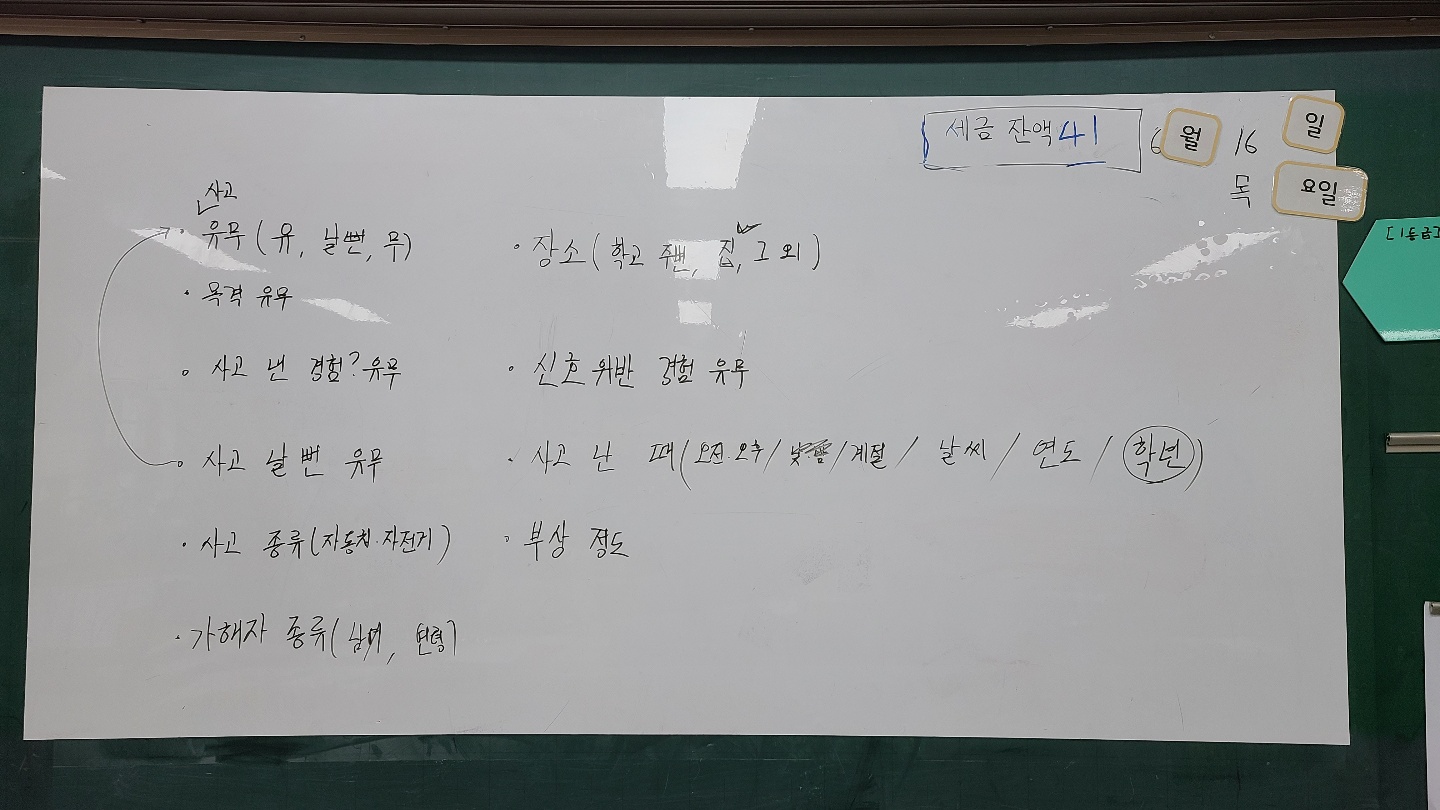 세금 잔액 41
6월 16일
목요일
사고
· 유무 (유, 날뻔, 무)
· 목격 유무
· 사고 낸 경험? 유무
· 사고 날 뻔 유무
· 사고 종류(자동차·자전거)
· 가해자 종류(남여, 연령)
· 장소(학교 주변, 집, 그 외)
· 신호위반 경험 유무
· 사고 난 때(오전·오후/ /계절/ 날씨/ 연도/ 학년)
· 부상 정도